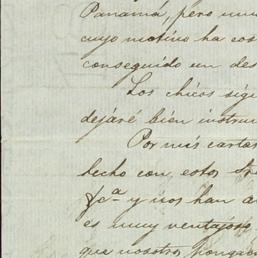 Panamá, pero
cuyo motivo ha cos
conseguido un des
Los chicos sigu
dejaré bien instru
Por mis cartas
hecho con, estos
fᵃ y nos han a
es muy ventajoso
que nosotros pongam